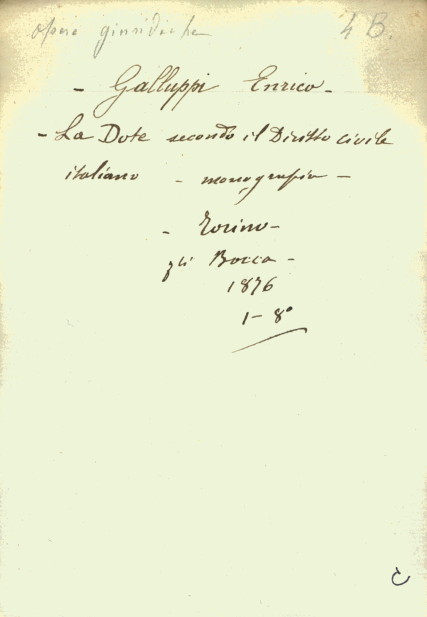 opere giuridiche 4 B.
- Galluppi Enrico -
- La Dote secondo il Diritto civile
italiano - monografia -
- Torino -
Bocca -
1876
1 - 8°